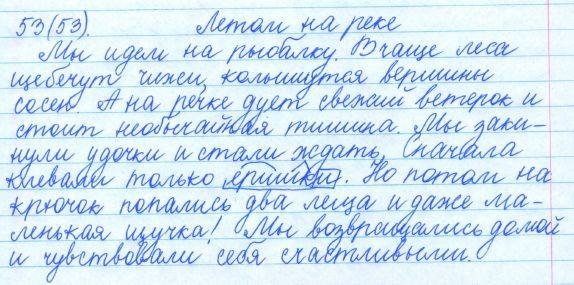 53(53). Летом на реке
Мы идем на рыбалку. В чаще леса
щебечут чижи, колышутся вершины
сосен. А на речке дует свежий ветерок и
стоит необычайная тишина. Мы заки-
нули удочки и стали ждать. Сначала
клевали только ершики. Но потом на
крючок попались два леща и даже ма-
ленькая щучка! Мы возвращались домой
и чувствовали себя счастливыми.